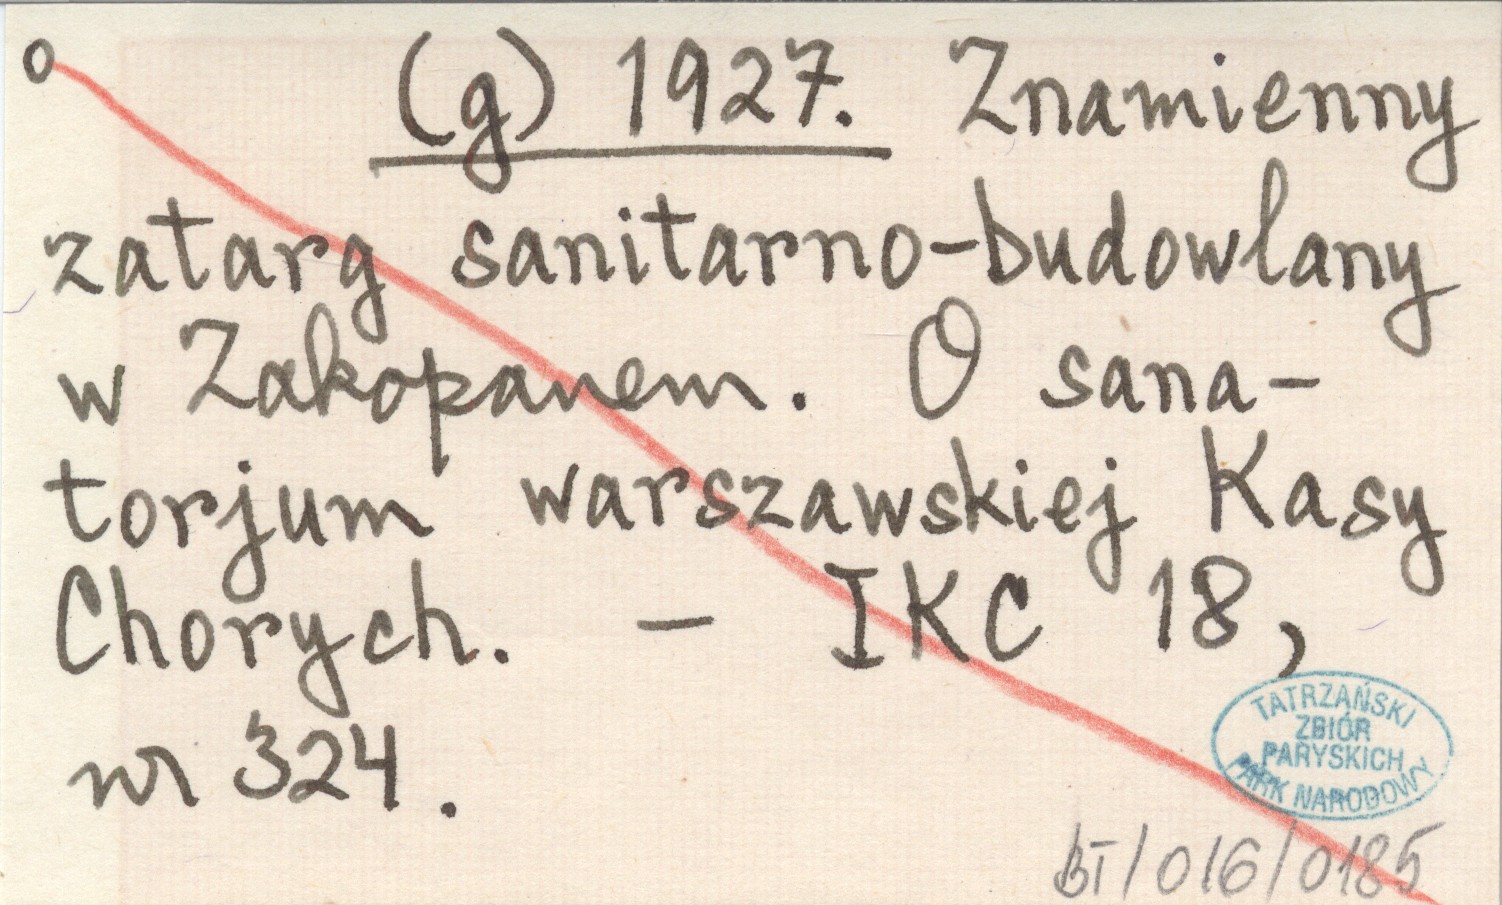 o (g) 1927. Znamienny
zatarg sanitarno-budowlany
w Zakopanem. O sana-
torjum warszawskiej Kasy
Chorych. - IKC 18,
nr 324.
TATRZAŃSKI
ZBIÓR
PARYSKICH
PARK NARODOWY
BT/016/0185